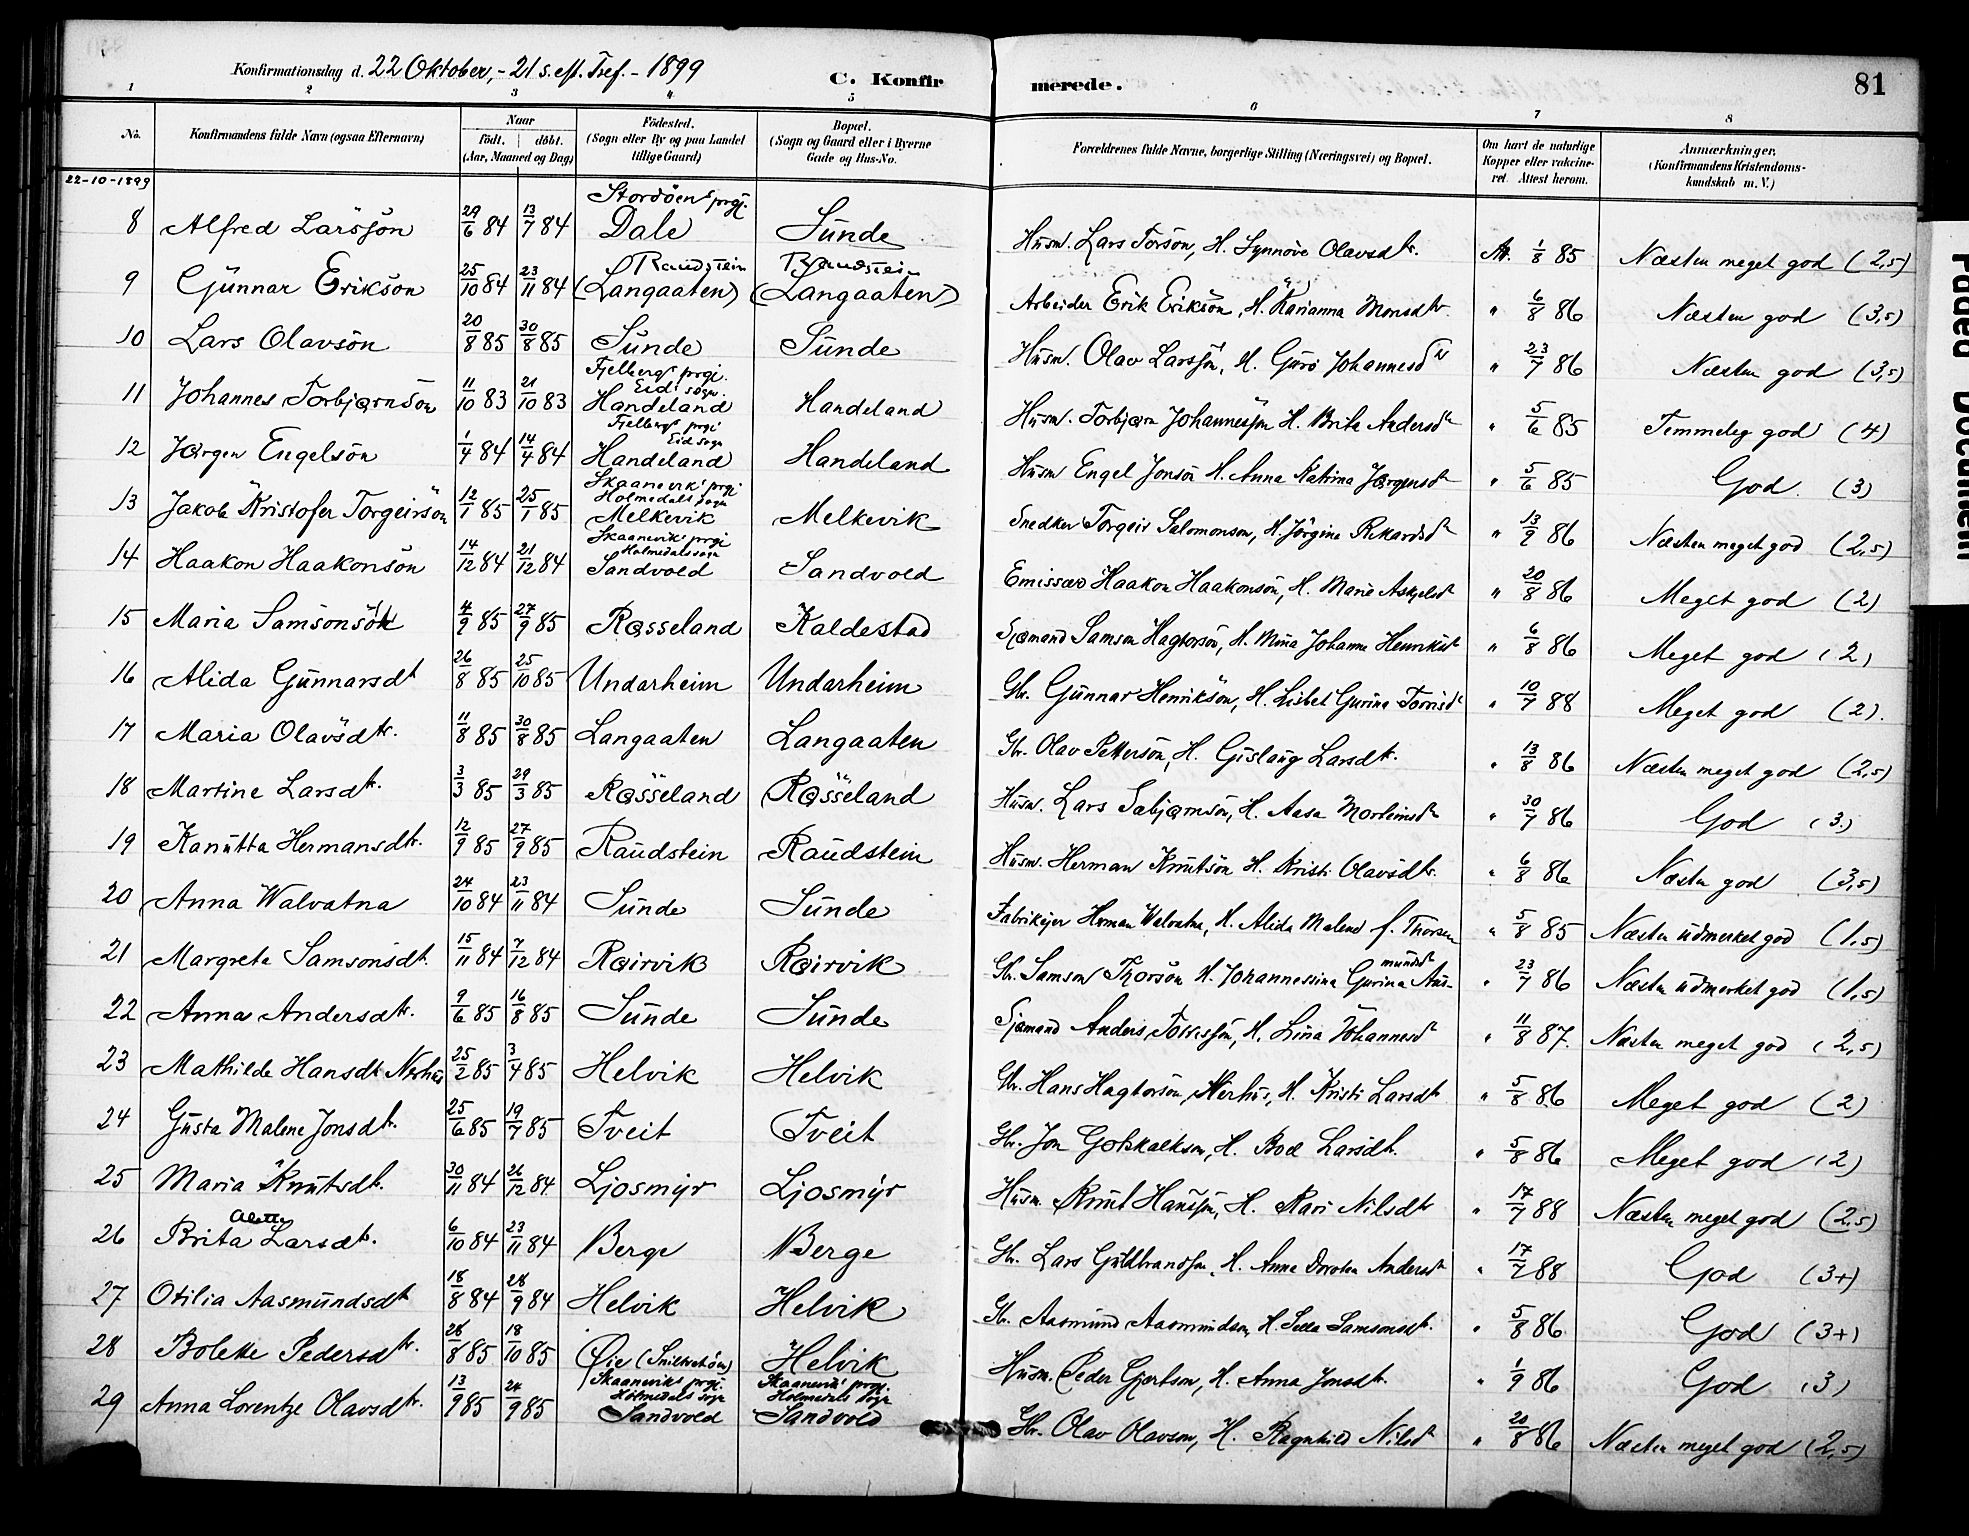 Konfirmationsdag d. 22 Oktober, - 21 s. eft. Tref. - 1899 C. Konfirmerede. 81
1 2 3 4 5 6 7 8
No. Konfirmandens fulde Navn (ogsaa Efternavn) Naar födt. döbt. (Aar, Maaned og Dag) Födested. (Sogn eller By og paa Landet tillige Gaard) Bopæl. (Sogn og Gaard eller i Byerne Gade og Hus-No. Forældrenes fulde Navne, borgerlige Stilling (Næringsvei) og Bopæl. Om havt de naturlige Kopper eller vakcineret. Attest herom. Anmærkninger. (Konfirmandens Kristendomskundskab m. V.)
22-10-1899
8 Alfred Larsson 29/6 84 13/7 84 Stordöens prgj. Dale Sunde Husm. Lars Torsön, H. Synnöve Olavsdtr. At. 1/8 85 Næsten meget god (2,5)
9 Gunnar Erikson 25/10 84 23/11 84 Raudstein (Langaaten) Raudstein (Langaaten) Arbeider Erik Erikson, H. Karianna Monsdtr. " 6/8 86 Næsten god (3,5)
10 Lars Olavsön 20/8 85 30/8 85 Sunde Sunde Husm. Olav Larssön, H. Guro Johannesdtr " 23/7 86 Næsten god (3,5)
11 Johannes Torbjørnsön 11/10 83 21/10 83 Fjelbergs prgj. Eids sogn Handeland Handeland Husm. Torbjørn Johannessøn H. Brita Andersdtr " 5/6 85 Temmeleg god (4)
12 Jørgen Engelsön 1/4 84 14/4 84 Fjelbergs prgj Eid sogn Handeland Handeland Husm Engel Jonsön H. Anna Katrina Jørgensdtr " 5/6 85 God. (3)
13 Jakob Kristofer Torgeirsön 12/1 85 25/1 85 Skaaneviks prgj Holmedals sogn Melkevik Melkevik Snedker Torgeir Salomonson, H. Jörgine Rikardsdtr " 13/9 86 Næsten meget god (2,5)
14 Haakon Haakonsön 14/12 84 21/12 84 Skaaneviks prgj Holmedals sogn Sandvold Sandvold Emissær Haakon Haakonsön, H. Marie Askjelsdtr " 20/8 86 Meget god (2)
15 Maria Samsons 4/9 85 27/9 85 Røsseland Kaldestad Sjømand Samson Hagtorsön, H. Mina Johanne Henriksdtr " 6/8 86 Meget god (2)
16 Alida Gunnarsdt 26/8 85 25/10 85 Undarheim Undarheim Gbr. Gunnar Henrikson, H. Lisbet Gurina Torrisdtr " 10/7 88 Meget god (2).
17 Maria Olavsdtr. 11/8 85 30/8 85 Langaaten Langaaten Gbr. Olav Pettersön, H. Gislaug Larsdtr. " 13/8 86 Næsten meget god (2,5)
18 Martine Larsdtr. 3/3 85 29/3 85 Røsseland Røsseland Husm. Lars Sæbjørnsön, H. Aasa Morteinsdtr " 30/7 86 God (3.)
19 Kanutta Hermansdtr. 12/9 85 27/9 85 Raudstein Raudstein Husm. Herman Knutsön H. Kristi Olavsdtr. " 6/8 86 Næsten god (3,5)
20 Anna Walvatna 24/10 84 23/11 84 Sunde Sunde Fabrikejer Herman Walvatna, H. Alida Malene f. Thorsen " 5/8 85 Næsten udmerket god (1,5)
21 Margrete Samsonsdt. 15/11 84 7/12 84 Røirvik Røirvik Gbr. Samson Thorsön H. Johannessina Gurina Aasmundsdt " 23/7 86 Næsten udmerket god (1,5)
22 Anna Andersdtr. 9/6 85 16/8 85 Sunde Sunde Sjømand Anders Torrissön, H. Lina Johannesdt " 11/8 87. Næsten meget god (2,5)
23 Mathilde Hansdt. Nerhus 25/2 85 3/4 85 Helvik Helvik Gbr. Hans Hagtorsön Nerhus, H. Kristi Larsdtr " 5/8 86 Meget god (2)
24 Gusta Malene Jonsdt. 25/6 85 19/7 85 Tveit Tveit Gbr. Jon Gotskalkson, H. Boel Larsdtr. " 5/8 86 Meget god (2)
25 Maria Knutsdt. 30/11 84 26/12 84 Ljosmyr Ljosmyr Husm. Knut Hansson, H. Kari Nilsdtr " 17/7 88 Næsten meget god (2,5)
26 Brita Alette Larsdtr. 6/10 84 23/11 84 Berge Berge Gbr. Lars Guldbrandson, H. Anna Dorotea Andersdtr " 17/7 88 God (3+)
27 Otilia Aasmundsdtr 18/8 84 28/9 84 Helvik Helvik Gbr. Aasmund Aasmundson, H. Samsonsdtr. " 5/8 86 God (3+)
28 Bolette Pedersdtr. 28/8 85 18/10 85 Øie Helvik Husm. Peder Gjertson, H. Anna Jonsdtr. " 1/9 86 God (3)
29 Anna Lorentze Olavsdtr. 13/9 85 24/9 85 Skaaneviks prgj. Holmedals sogn Sandvold Skaaneviks prgj. Holmedals sogn Sandvold Gbr. Olav Olavson, H. Ragnhild Nilsdt " 20/8 86 Næsten meget god (2,5)
Faded Document